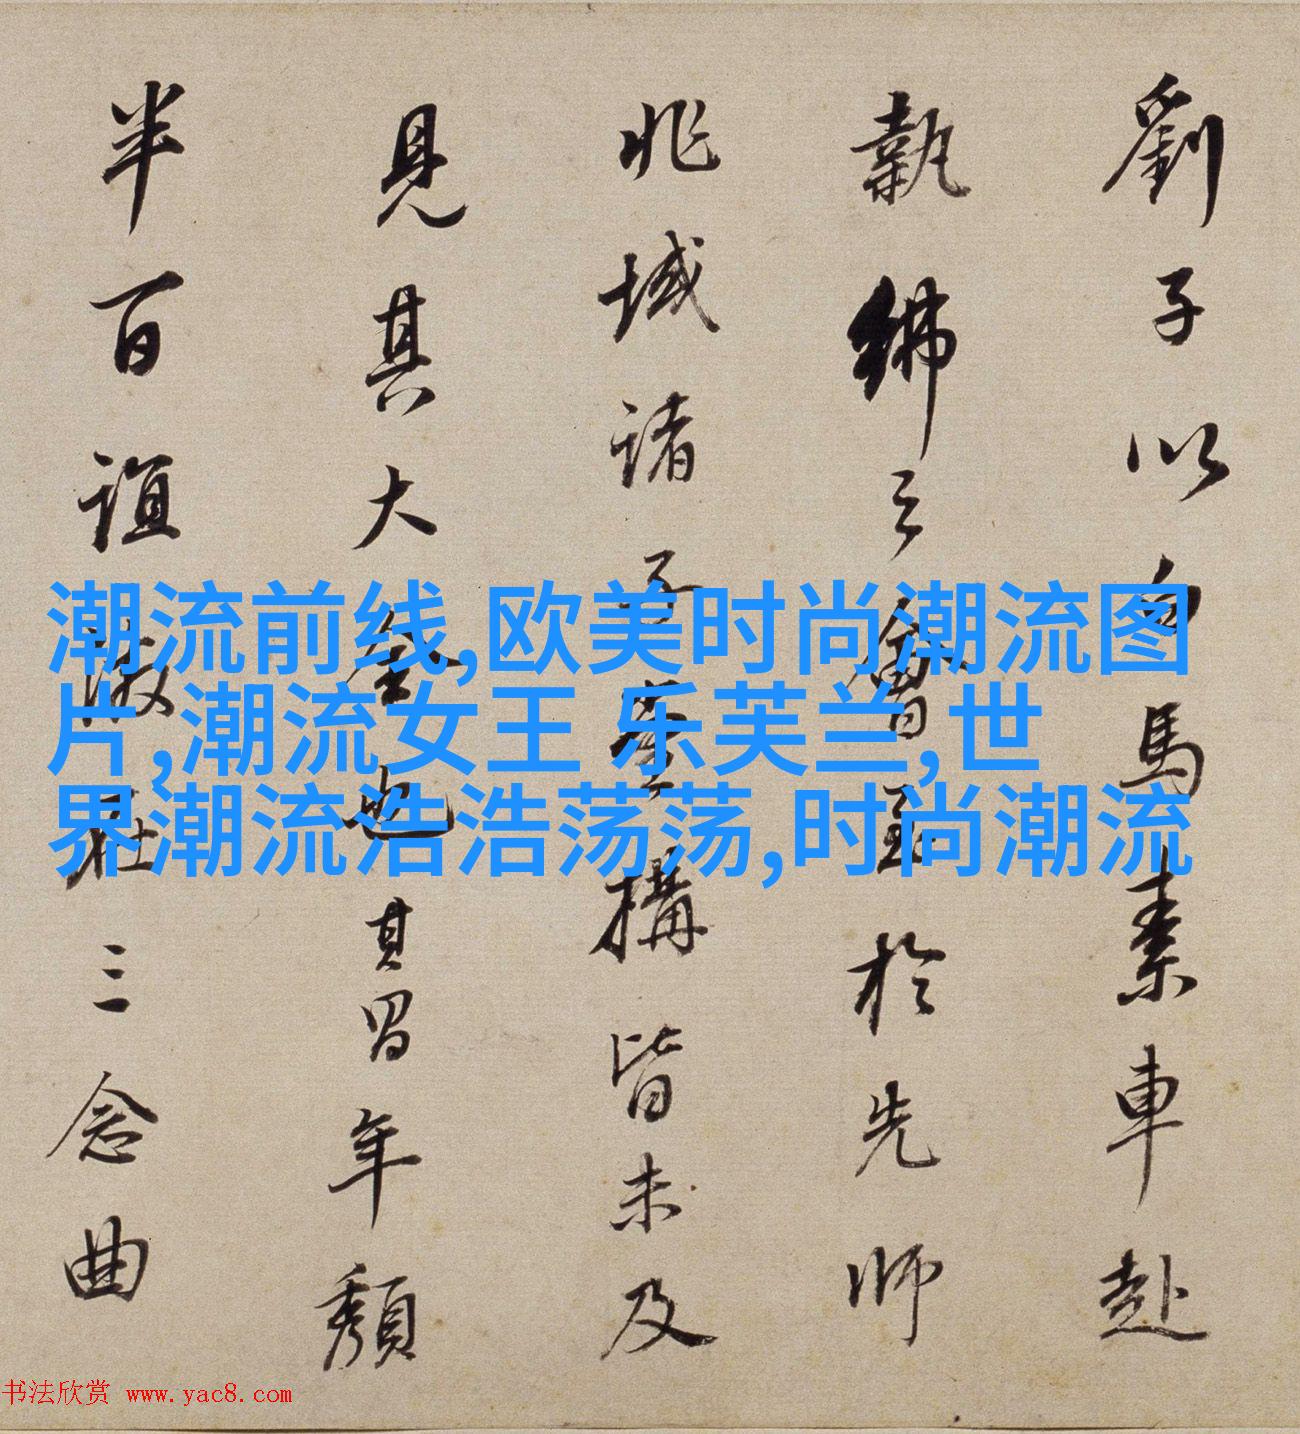 劉子以白馬素車赴
執紼之會至於先師
兆域諸子堂構皆未及
見其大也其冒年頹
半百誼激在三念曲
潮流前线,欧美时尚潮流图
片,潮流女王 乐芙兰,世
界潮流浩浩荡荡,时尚潮流
书法欣赏 www.yac8.com